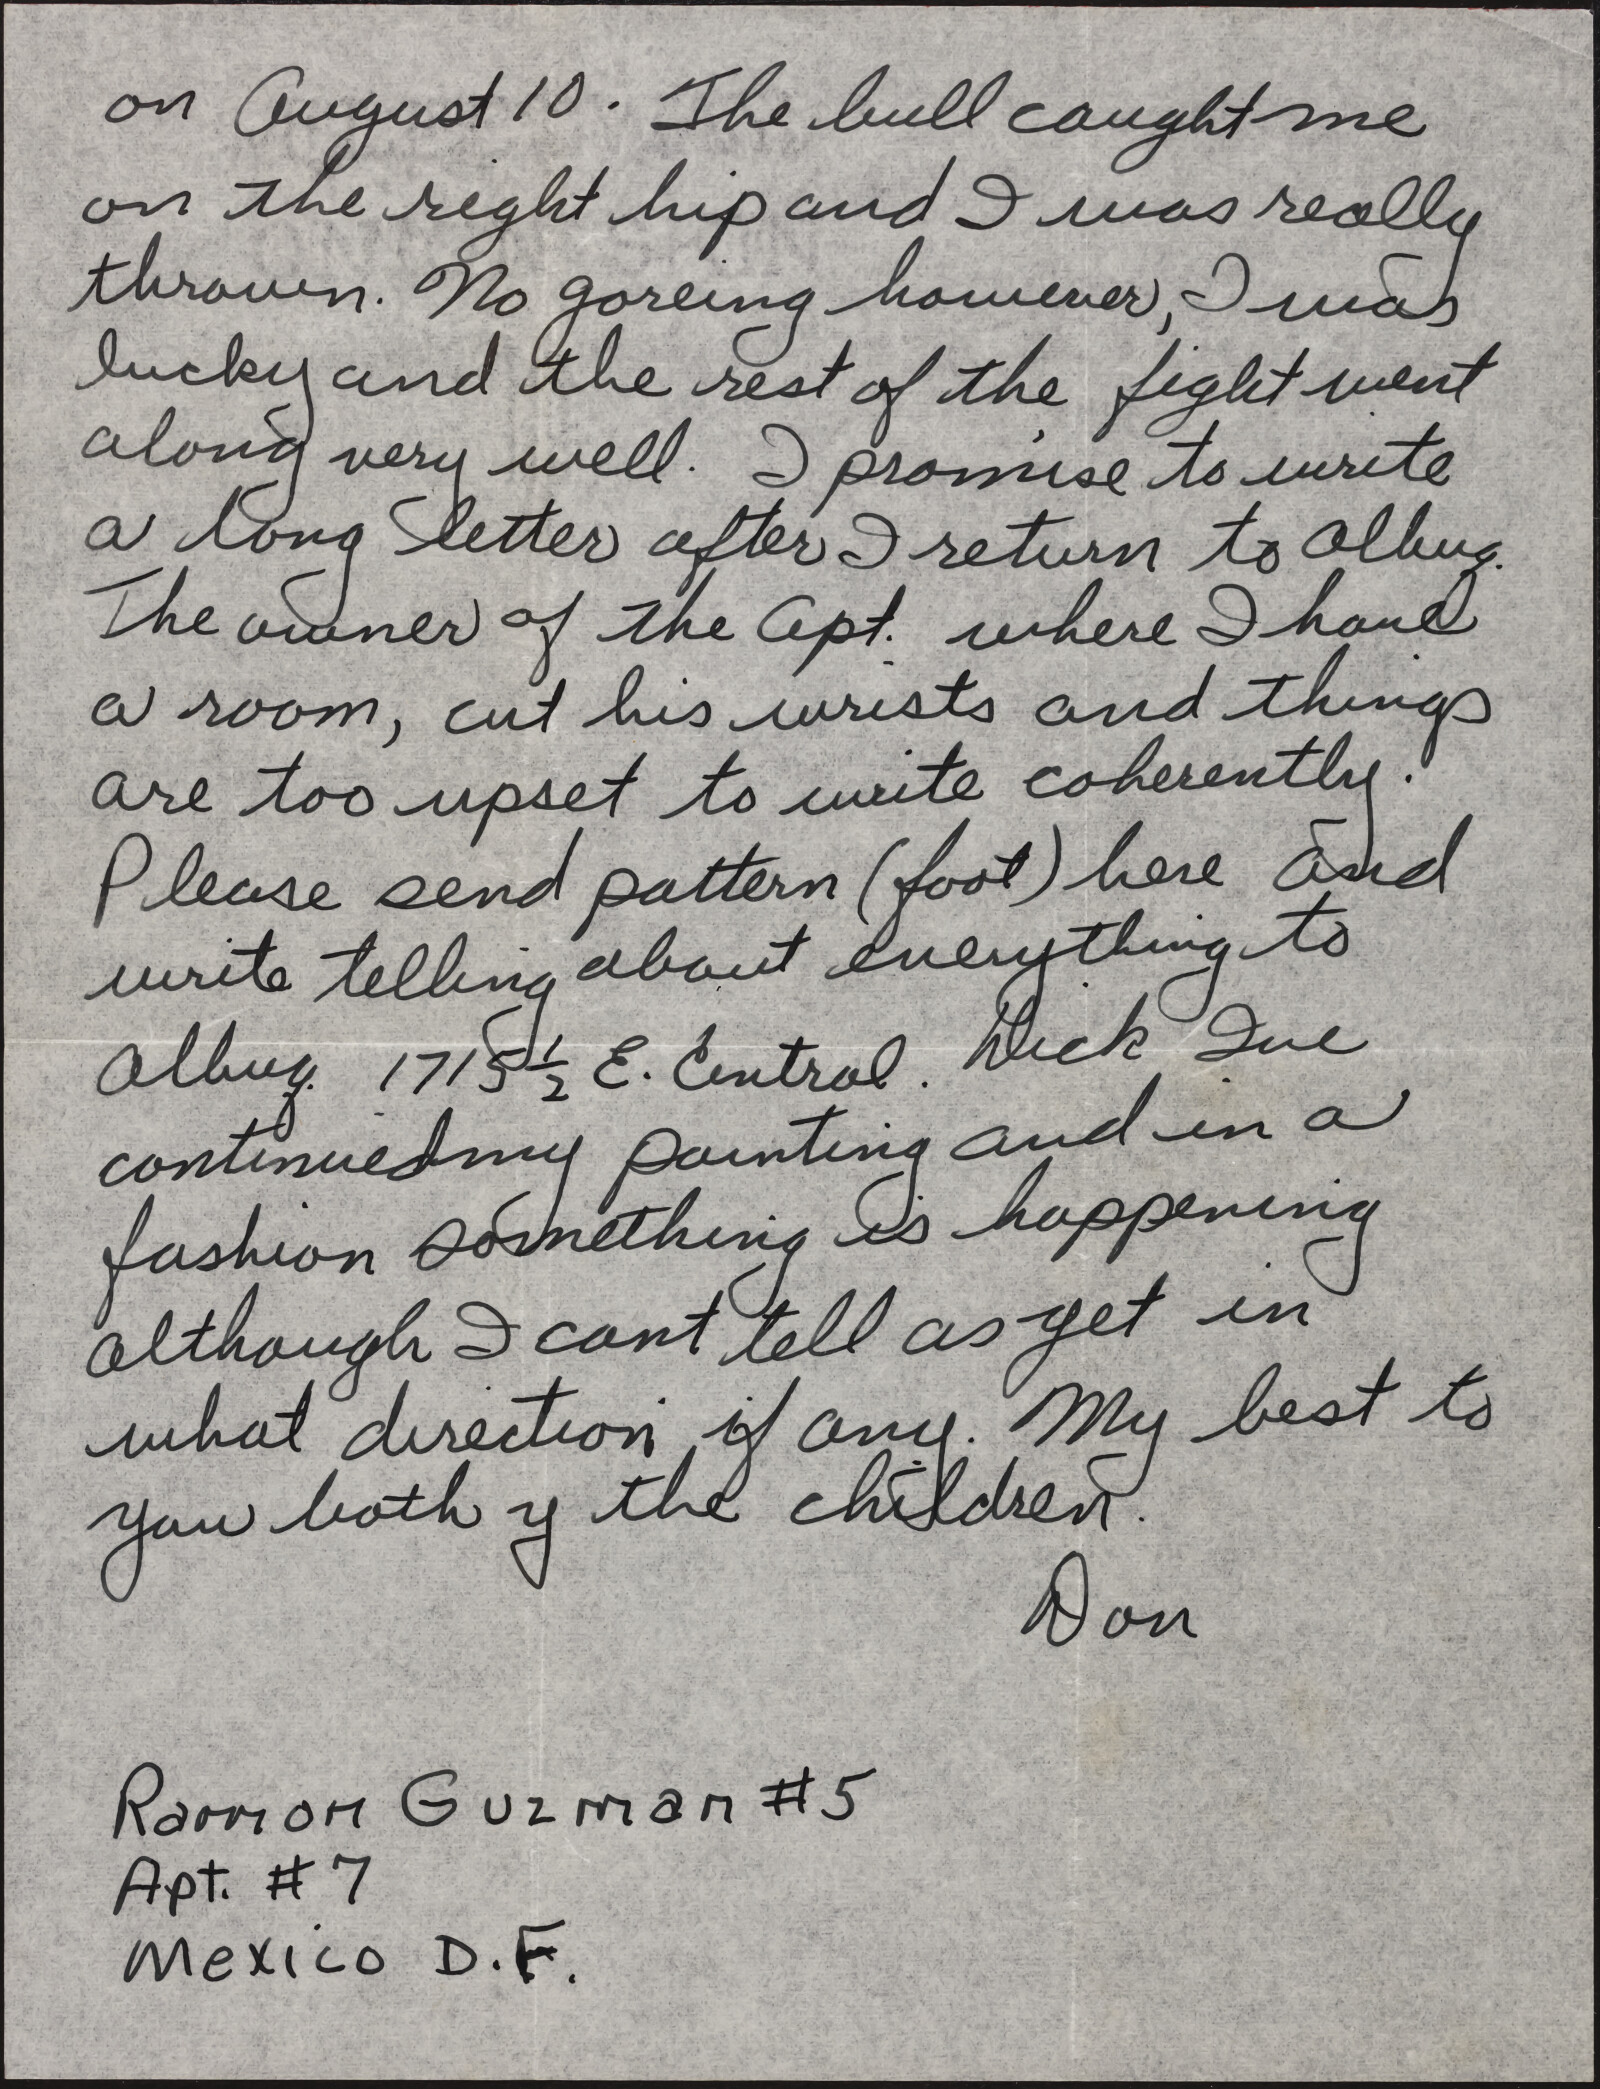 on August 10. The bull caught me
on the right hip and I was really
thrown. No goreing however, I was
lucky and the rest of the fight went
along very well. I promise to write
a long letter after I return to Albuq.
The owner of the Apt. where I have
a room, cut his wrists and things
are too upset to write coherently.
Please send pattern (foot) here and
write telling about everything to
Albuq. 1715½ E. Central. Dick Ive
continued my painting and in a
fashion something is happening
although I cant tell as yet in
what direction if any. My best to
you both y the children.
Don
Ramon Guzman #5
Apt. #7
Mexico D.F.